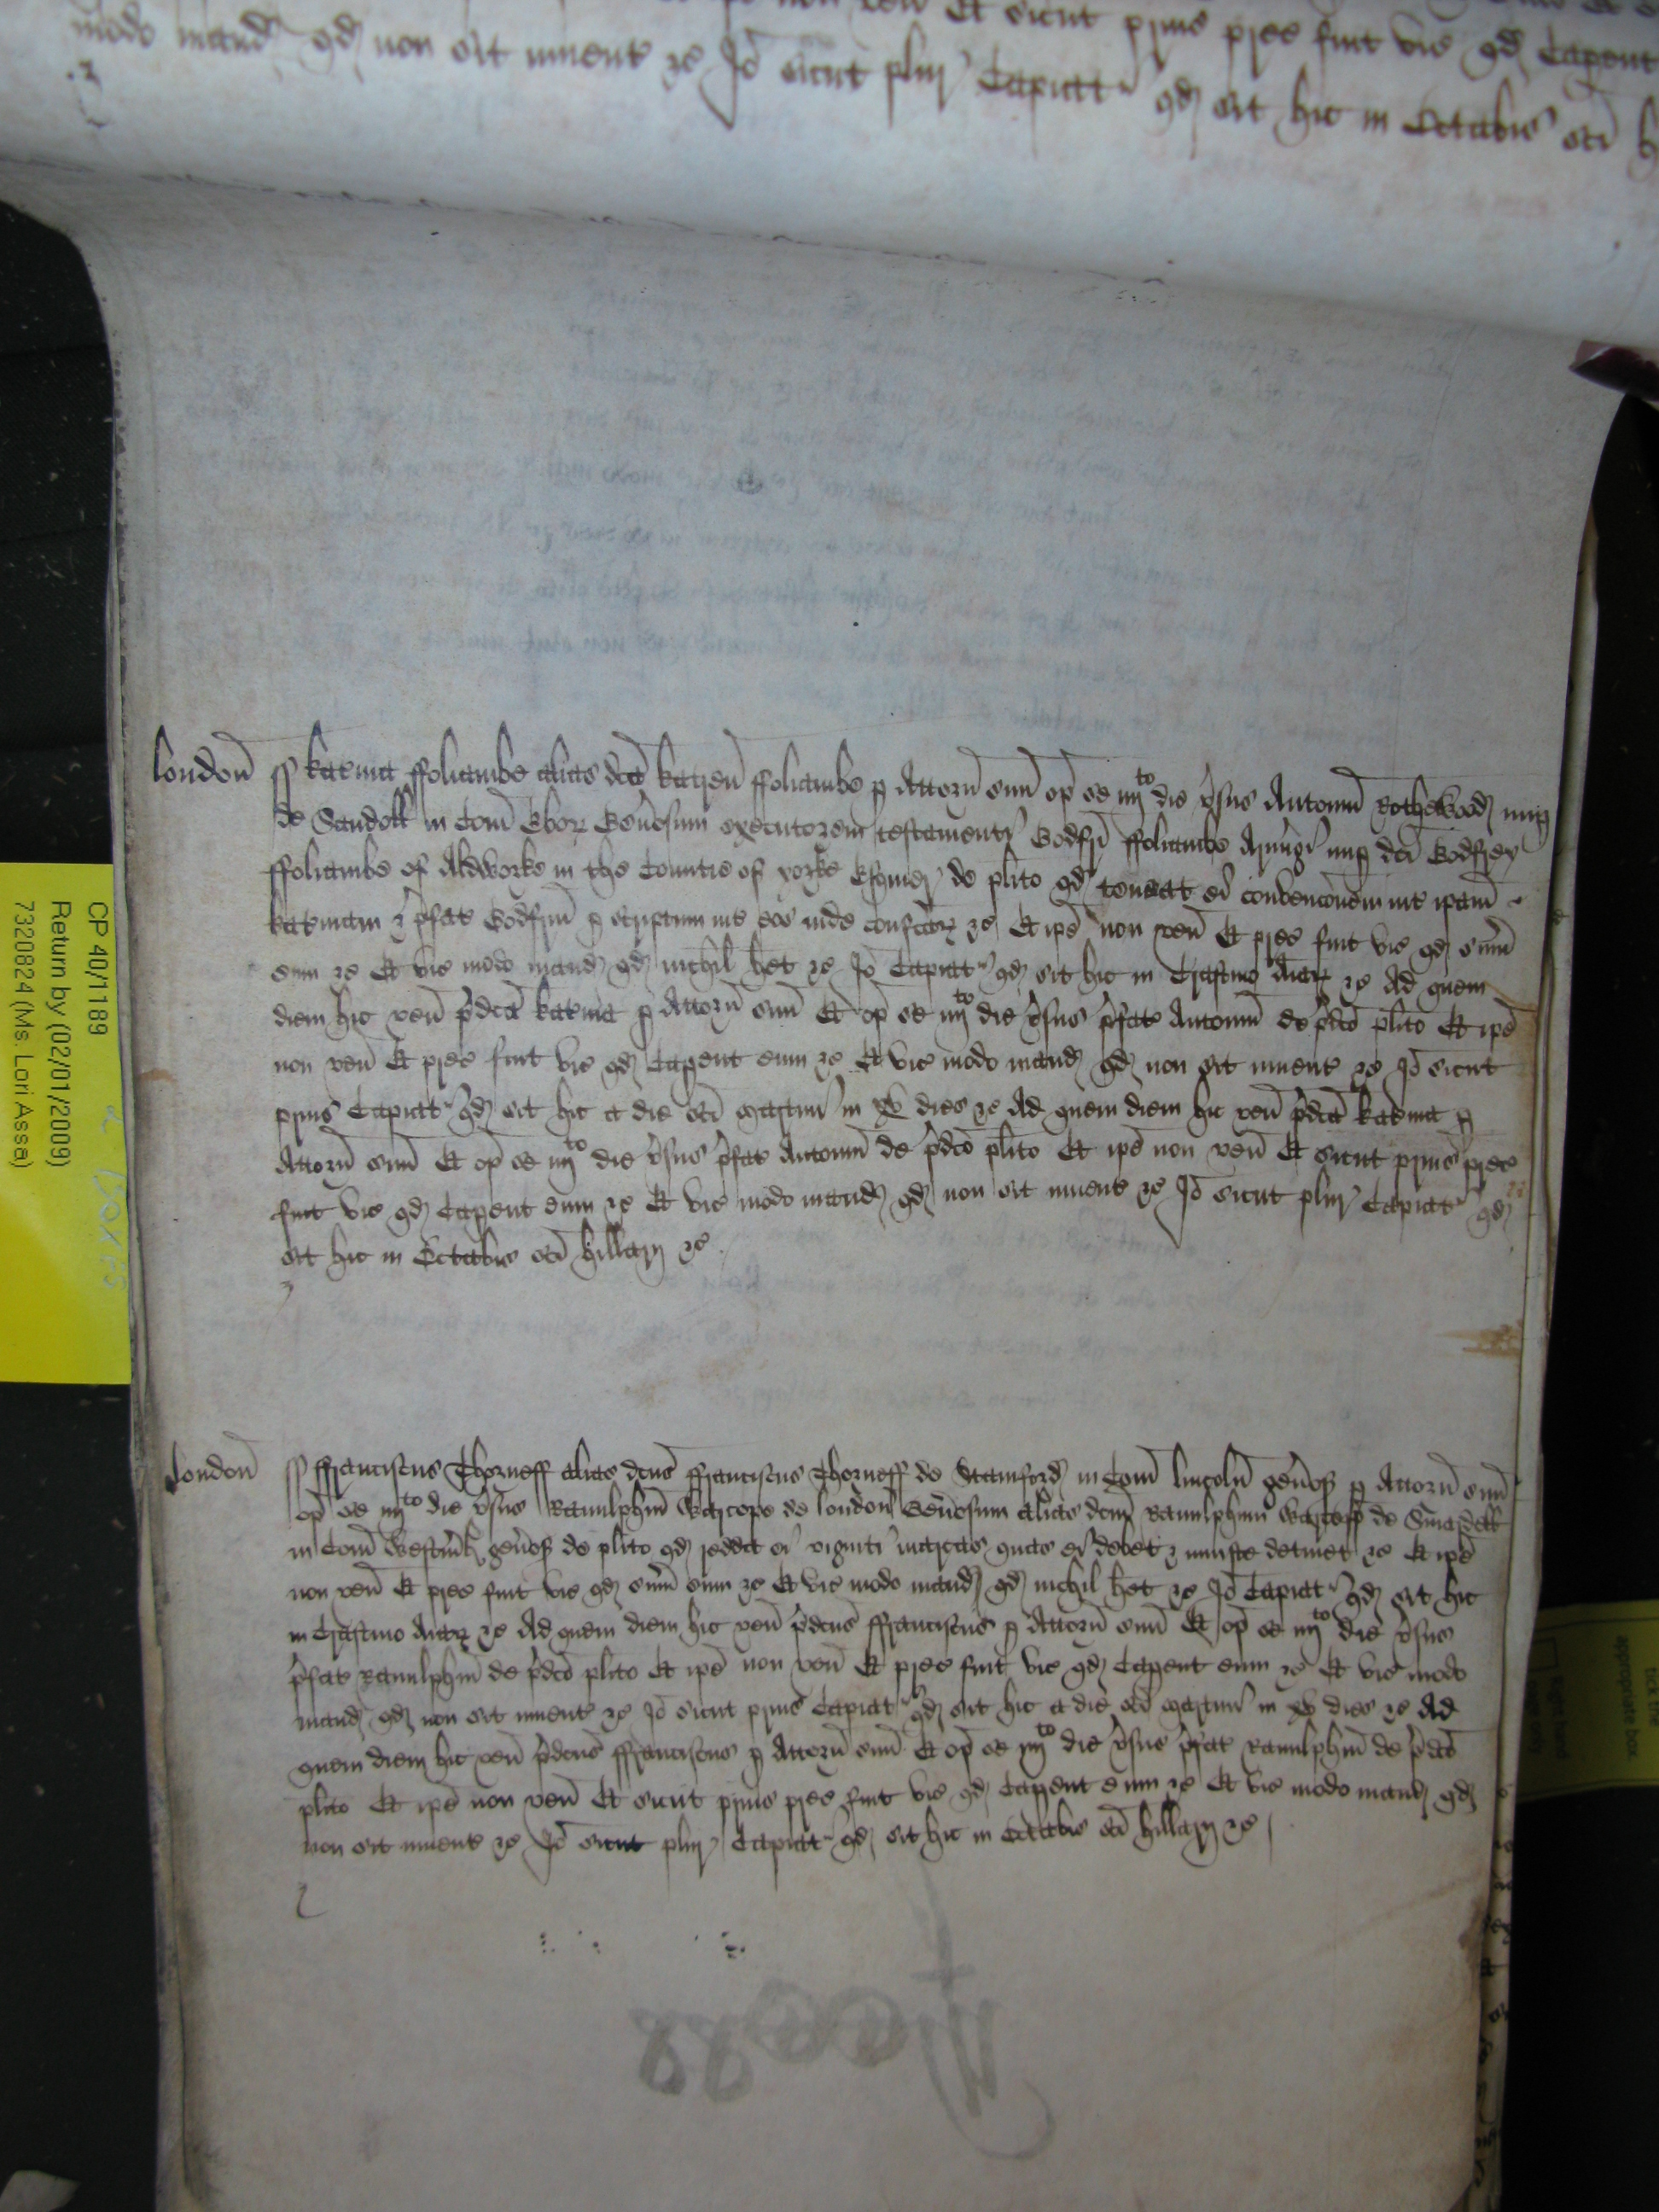 Et sicut prius prec fuit vic qd Capent
modo mand qd non est invent zc Jo sicut plur Capiatr qd sit hic in Octabis sci h
london ss katina ffoliambe alias dca katren ffoliambe p Attorn suu op se iiijto die vsus Antoniu nup
de Sandall in Com Ebor Genosum executorem testamenti Godfri ffoliambe Armigi nup dci Godfrey
ffoliambe of Aldworke in the Countie of yorke Esquier de plito qd teneat ei convencoem int ipam
katinam & pfat Godfrm p scriptum int eos inde confcam zc Et ipe non ven Et prec fuit vic qd sum
eum zc Et vic modo mand qd nichil het zc Jo Capiatr qd sit hic in Crastino Aiar zc Ad quem
diem hic ven pdca katina p Attorn suu Et op se iiijto die vsus pfat Antoniu de pdco plito Et ipe
non ven Et prec fuit vic qd Capent eum zc Et vic modo mand qd non est invent zc Jo sicut
prius Capiatr qd sit hic a die sci Martini in xv dies zc Ad quem diem hic ven pdca katina p
Attorn suu Et op se iiijto die vsus pfat Antoniu de pdco plito Et ipe non ven Et sicut prius prec
fuit vic qd Capent eum zc Et vic modo mand qd non est invent zc Jo sicut plur Capiatr qd
sit hic in Octabis sci hillarij zc
london ss ffranciscus Thorneff alias dcus ffranciscus Thorneff de Stamford in Com lincoln genos p Attorn suu
op se iiijto die vsus Ranulphm Warcope de london Genosum alias dcm Ranulphum Warcopp de Smardall
in Com Westmrl genos de plito qd reddat ei viginti marcas quas ei debet & iniuste detinet zc Et ipe
non ven Et prec fuit vic qd sum eum zc Et vic modo mand qd nichil het zc Jo Capiatr qd sit hic
in Crastino Aiar zc Ad quem diem hic ven pdcus ffranciscus p Attorn suu Et op se iiijto die vsus
pfat Ranulphm de pdco plito Et ipe non ven Et prec fuit vic qd Capent eum zc Et vic modo
mand qd non est invent zc Jo sicut prius Capiatr qd sit hic a die sci Martini in xv dies zc Ad
quem diem hic ven pdcus ffranciscus p Attorn suu Et op se iiijto die vsus pfat Ranulphm de pdco
plito Et ipe non ven Et sicut prius prec fuit vic qd Capent eum zc Et vic modo mand qd
non est invent zc Jo sicut plur Capiatr qd sit hic in Octabis sci hillarij zc
CP 40/1189
Return by (02/01/2009)
7320824 (Ms. Lori Assa)
tick the
appropriate box